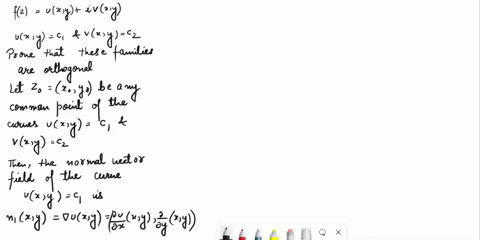 f(z) = u(x,y) + i v(x,y)
u(x,y) = c₁ & v(x,y) = c₂
Prove that these families
are orthogonal
Let z₀ = (x₀, y₀) be any
common point of the
curves u(x,y) = c₁ &
v(x,y) = c₂
Then, the normal vector
field of the curve
u(x,y) = c₁ is
n₁(x,y) = ∇u(x,y) = (∂u/∂x (x,y), ∂/∂y (x,y))